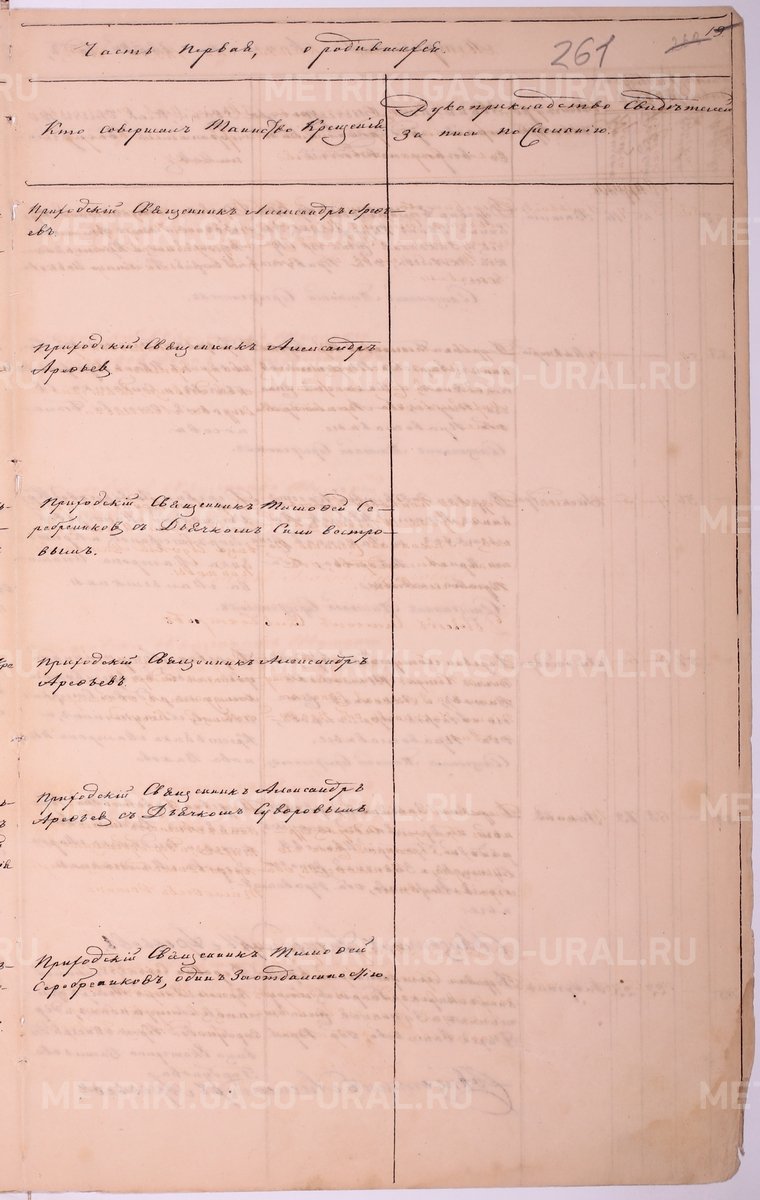 Часть первая, о родившихся.
261
19
Кто совершалъ Таинство Крещенія.
Рукоприкладство Свидѣтелей
записи по Желанію.
Приходскій Священникъ Александръ Арефь–
евъ
Приходскій Священникъ Александръ
Арефьевъ
Приходскій Священникъ Тимофей Се–
ребренниковъ съ Дьячкомъ
вымъ.
Приходскій Священникъ Александръ
Арефьевъ
Приходскій Священникъ Александръ
Арефьевъ съ Дьячкомъ Суворовымъ
Приходскій Священникъ Тимофей
Серебрениковъ, одинъ За отдаленностію.
METRIKI.GASO-URAL.RU